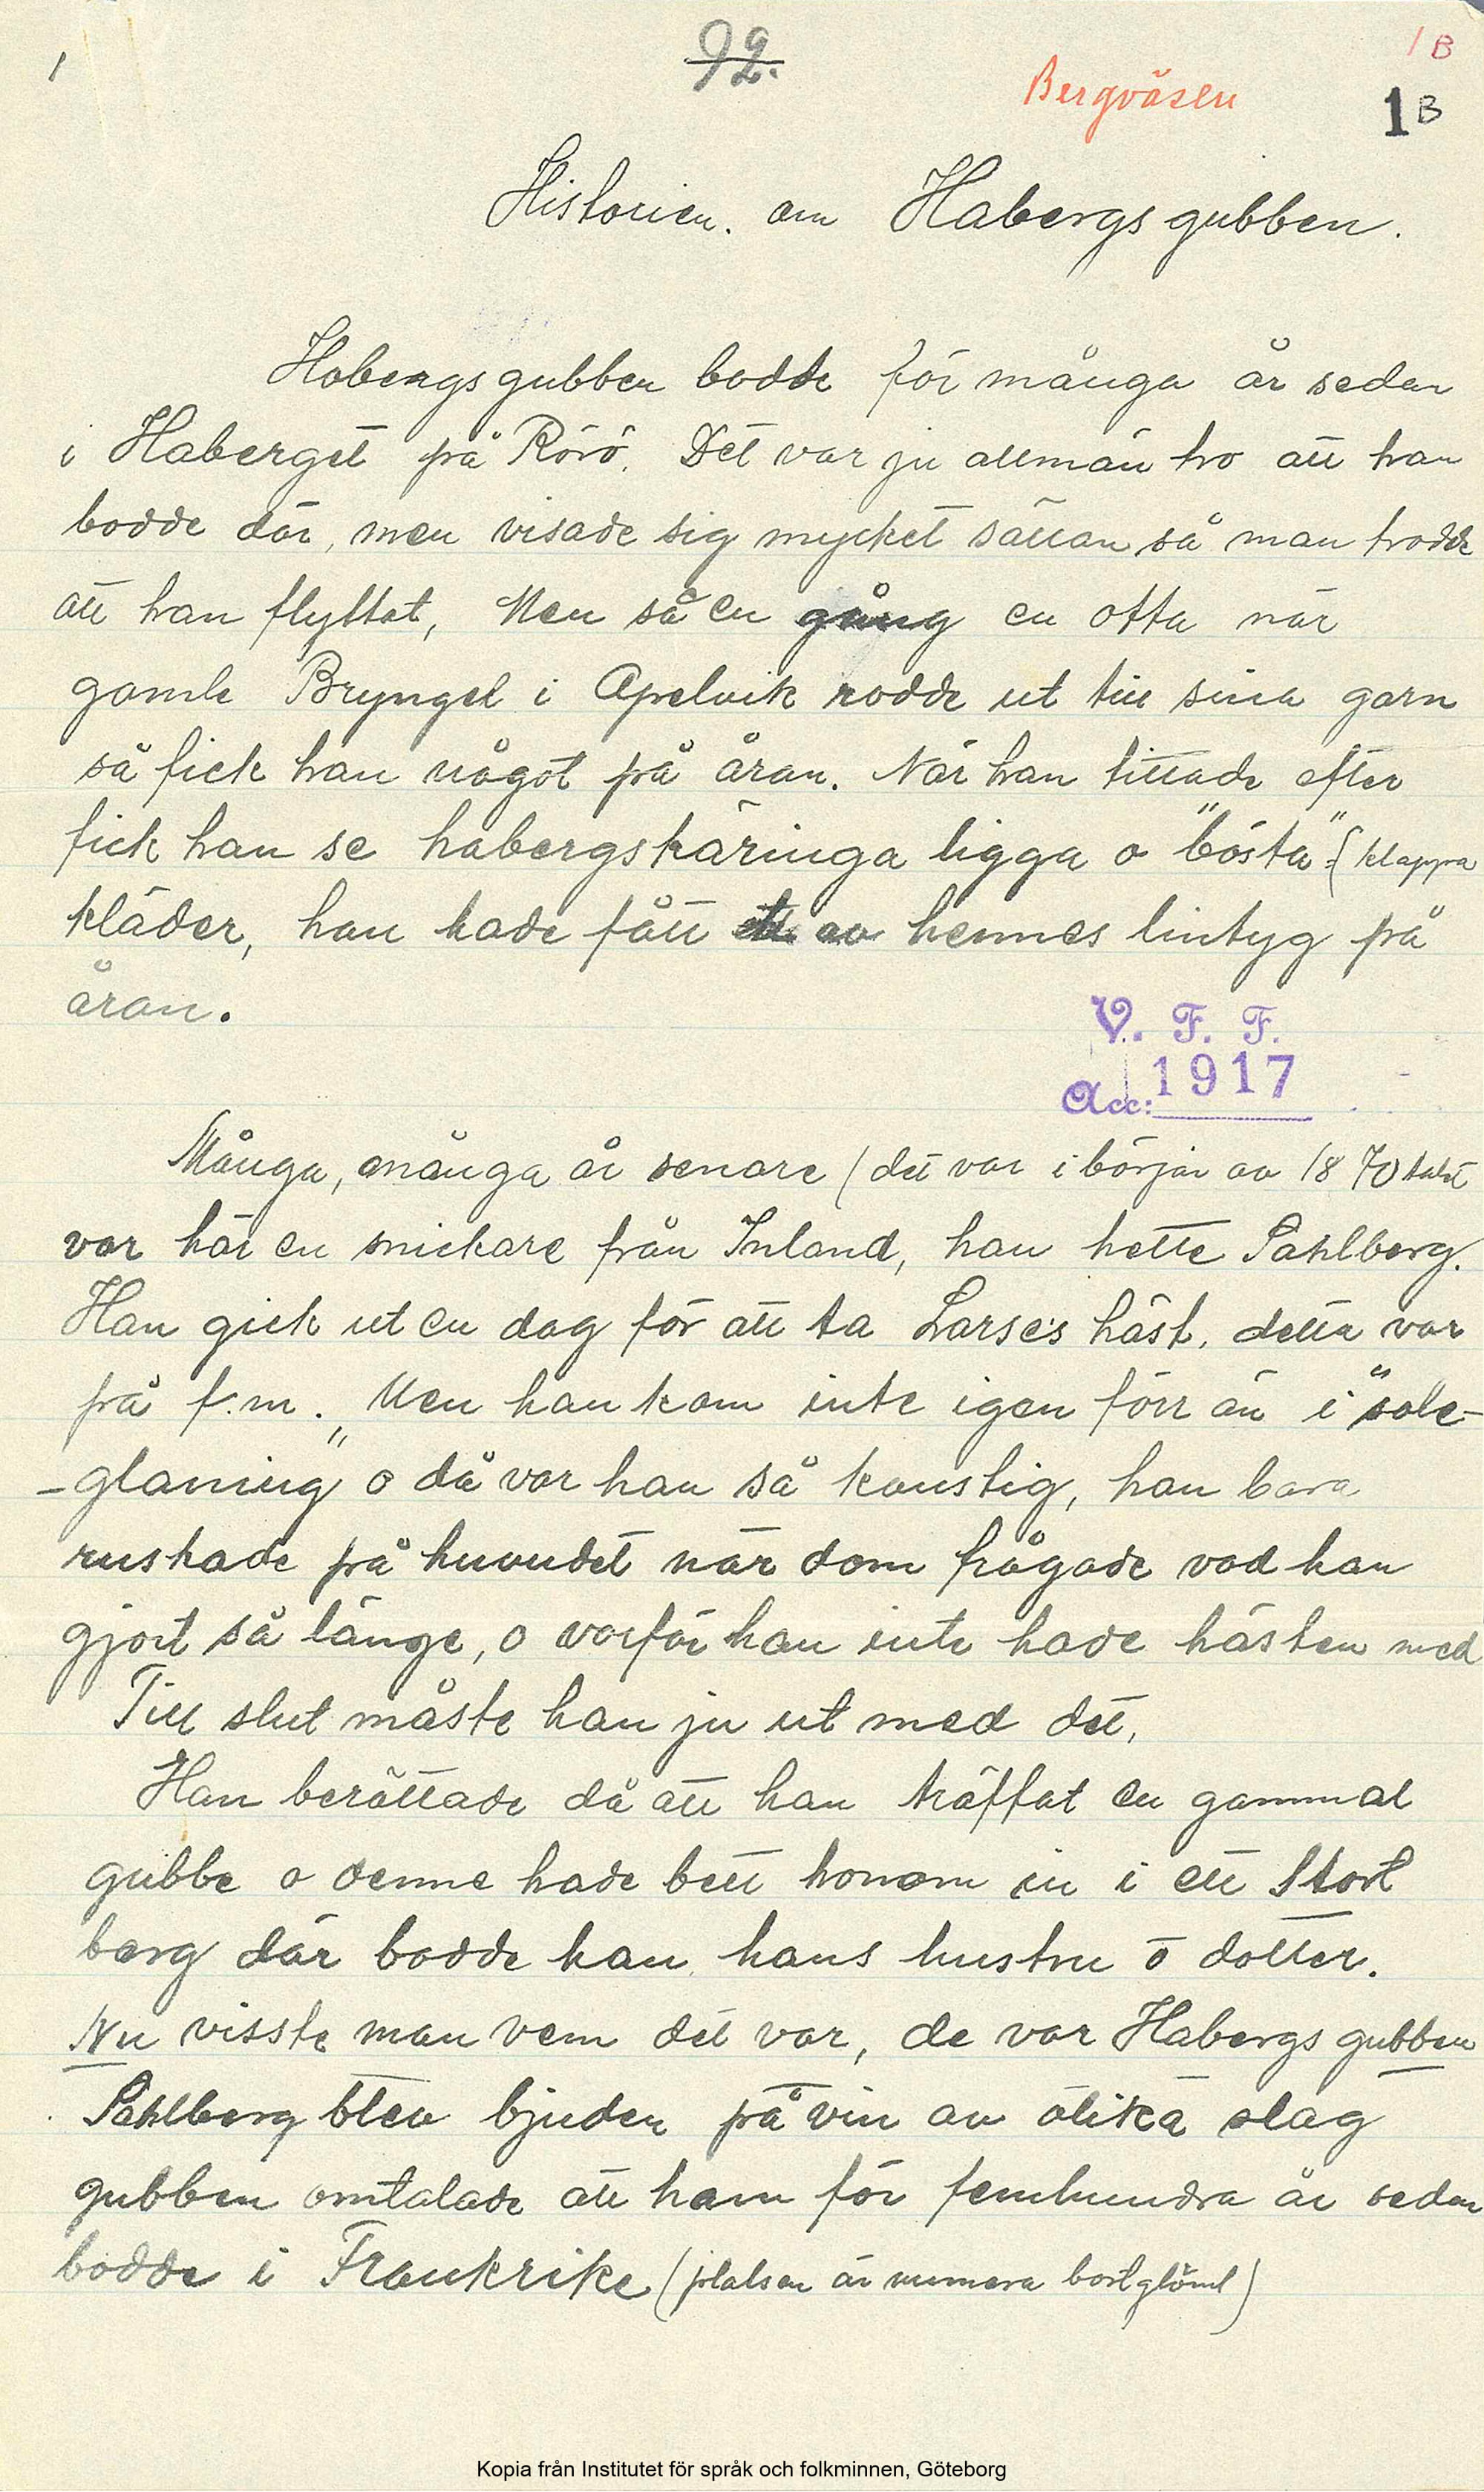 1
92.
1 B
Bergväsen
1 B
Historien. om Habergsgubben.
Habergsgubben bodde för många år sedan
i Haberget på Rörö. Det var ju allmän tro att han
bodde där, men visade sig mycket sällan så man trodde
att han flyttat, Men så en gång en otta när
gamle Bryngel i Apelvik rodde ut till sina garn
så fick han något på åran. När han tittade efter
fick han se habergskäringa ligga o "bösta" = (klappa
kläder, han hade fått ett av hennes lintyg på
åran.
V. F. F.
Acc: 1917
Många, många år senare (det var i början av 1870 talet
var här en snickare från Inland, han hette Pahlberg.
Han gick ut en dag för att ta Larses häst, detta var
på f.m. Men han kom inte igen förr än i "sole-
-glaning" o då var han så konstig, han bara
ruskade på huvudet när dom frågade vad han
gjort så länge, o varför han inte hade hästen med
Till slut måste han ju ut med det,
Han berättade då att han träffat en gammal
gubbe o denne hade bett honom in i ett stort
berg där bodde han hans hustru o dotter.
Nu visste man vem det var, de var Habergsgubben
Pahlberg blev bjuden på vin av olika slag
gubben omtalade att ham för femhundra år sedan
bodde i Frankrike (platsen är numera bortglömt)
Kopia från Institutet för språk och folkminnen, Göteborg